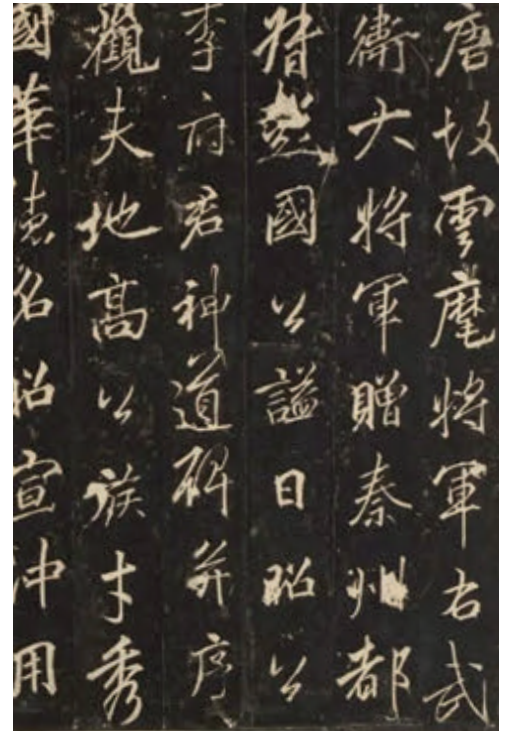 唐故雲麾将軍右武
衛大将軍贈秦州都
督彭國公謚曰昭公
李府君神道碑并序
觀夫地高公族才秀
國華德名昭宣沖用